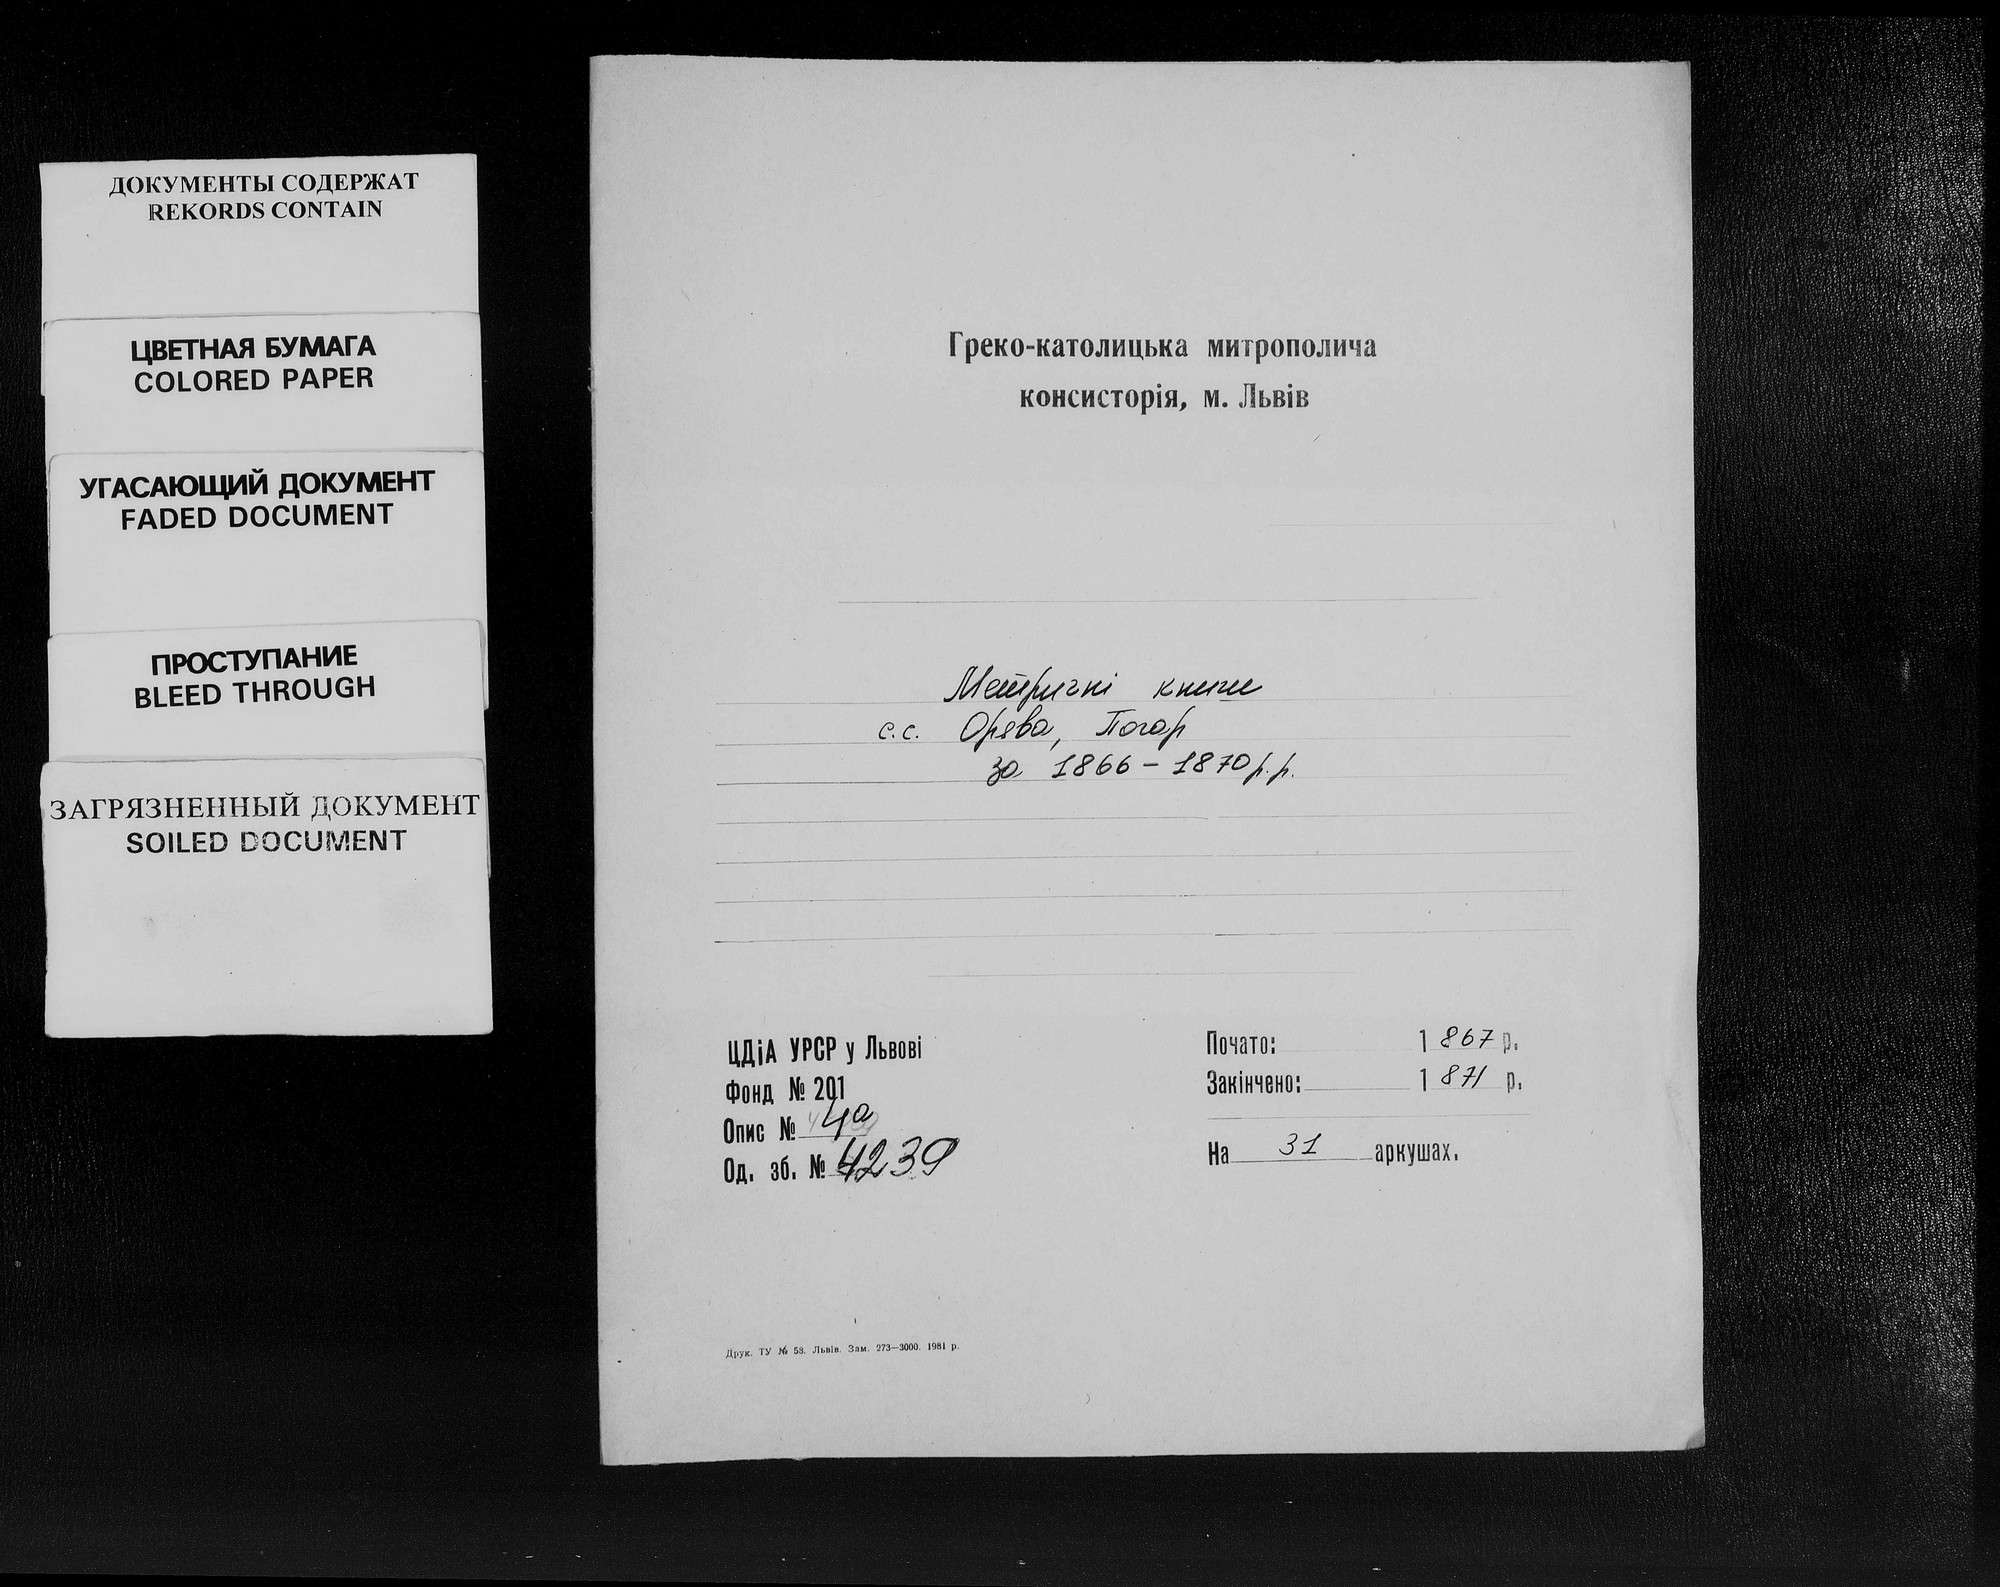 ДОКУМЕНТЫ СОДЕРЖАТ
REKORDS CONTAIN
ЦВЕТНАЯ БУМАГА
COLORED PAPER
УГАСАЮЩИЙ ДОКУМЕНТ
FADED DOCUMENT
ПРОСТУПАНИЕ
BLEED THROUGH
ЗАГРЯЗНЕННЫЙ ДОКУМЕНТ
SOILED DOCUMENT
Греко-католицька митрополича
консисторія, м. Львів
Метричні книги
с.с. Орява, Погар
за 1866 – 1870 р.р.
ЦДіА УРСР у Львові
Фонд № 201
Опис № 4а
Од. зб. № 4239
Почато: 1867 р.
Закінчено: 1871 р.
На 31 аркушах.
Друк. ТУ № 58. Львів. Зам. 273—3000. 1981 р.